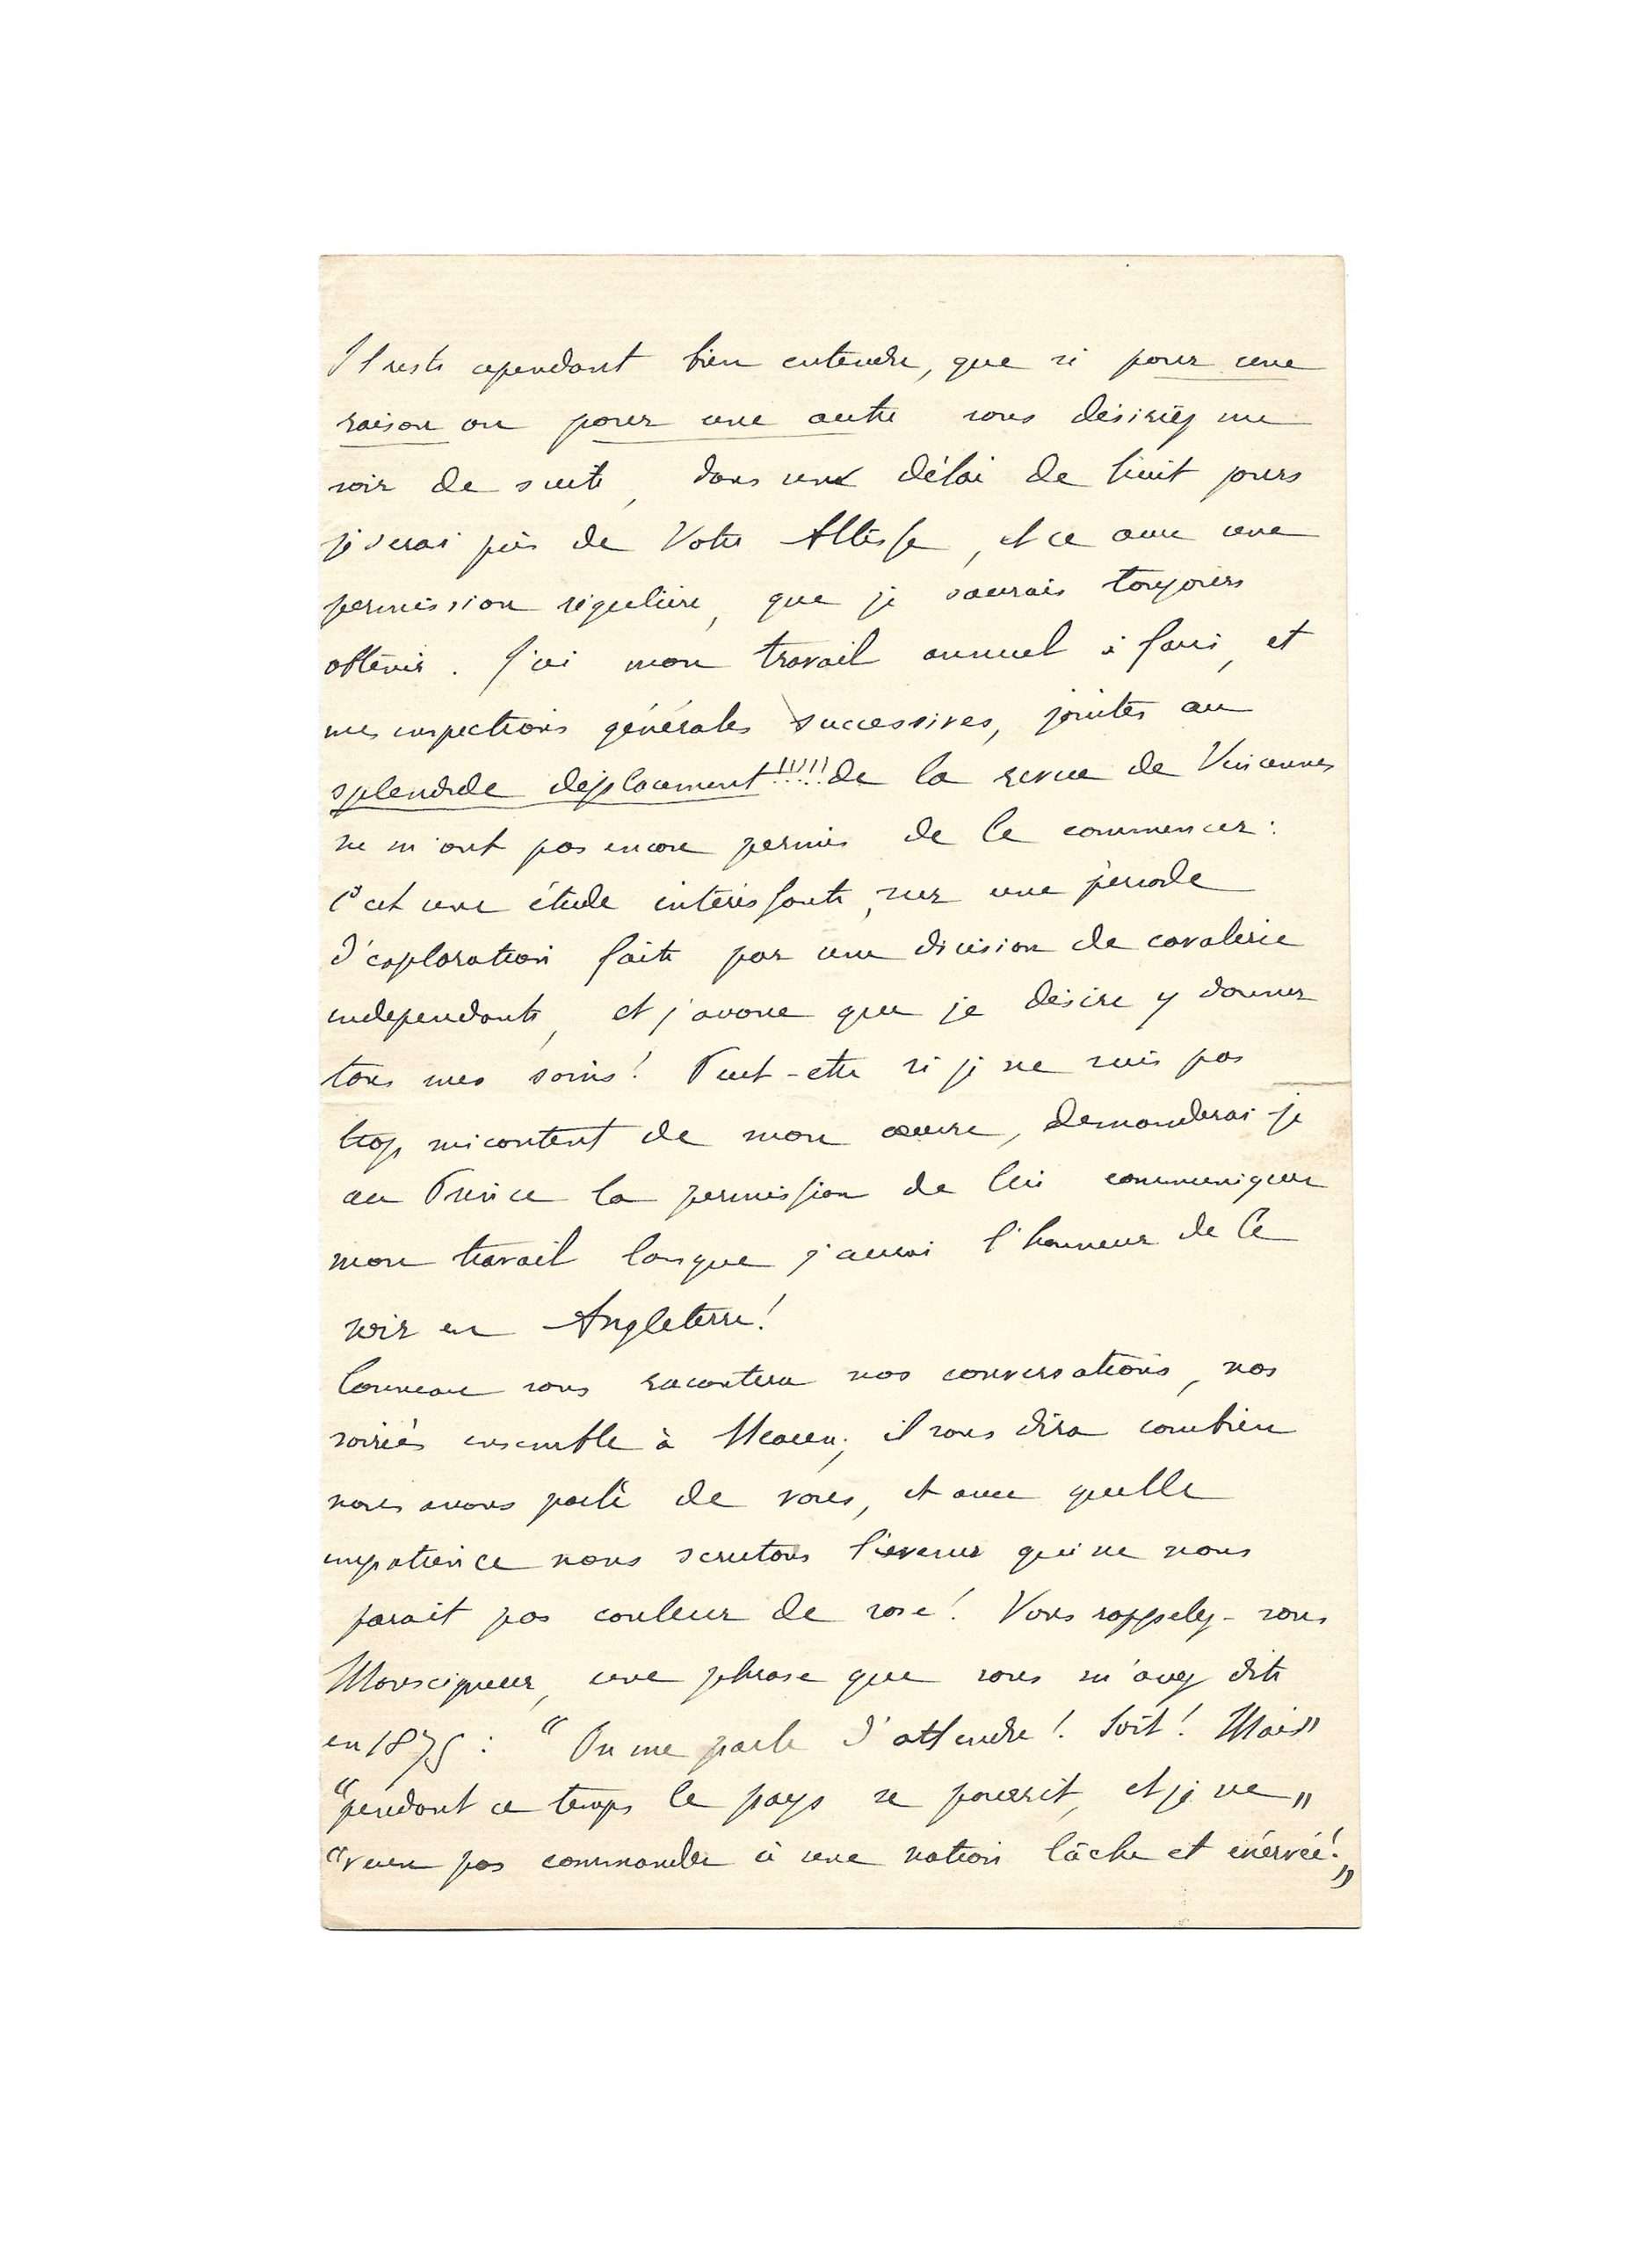 Il reste cependant bien entendu, que si pour une
raison ou pour une autre vous désiriez me
voir de suite, dans un délai de huit jours
je serai près de Votre Altesse, et ce avec une
permission régulière, que je saurais toujours
obtenir. J'ai mon travail annuel à faire, et
mes inspections générales successives, jointes au
splendide déplacement !!!!! de la revue de Vincennes
ne m'ont pas encore permis de le commencer :
C'est une étude intéressante, sur une période
d'exploration faite par une division de cavalerie
indépendante, et j'avoue que je désire y donner
tous mes soins ! Peut-etre si je ne suis pas
trop mécontent de mon œuvre, demanderai-je
au Prince la permission de lui communiquer
mon travail lorsque j'aurai l'honneur de le
voir en Angleterre !
Conneau vous racontera nos conversations, nos
soirées ensemble à Meaux ; il vous dira combien
nous avons parlé de vous, et avec quelle
impatience nous scrutons l'avenir qui ne nous
parait pas couleur de rose ! Vous rappelez-vous
Monseigneur, une phrase que vous m'avez dite
en 1875 : "On me parle d'attendre ! Soit ! Mais"
"pendant ce temps le pays se pourrit, et je ne"
"veux pas commander à une nation lâche et énervée !"